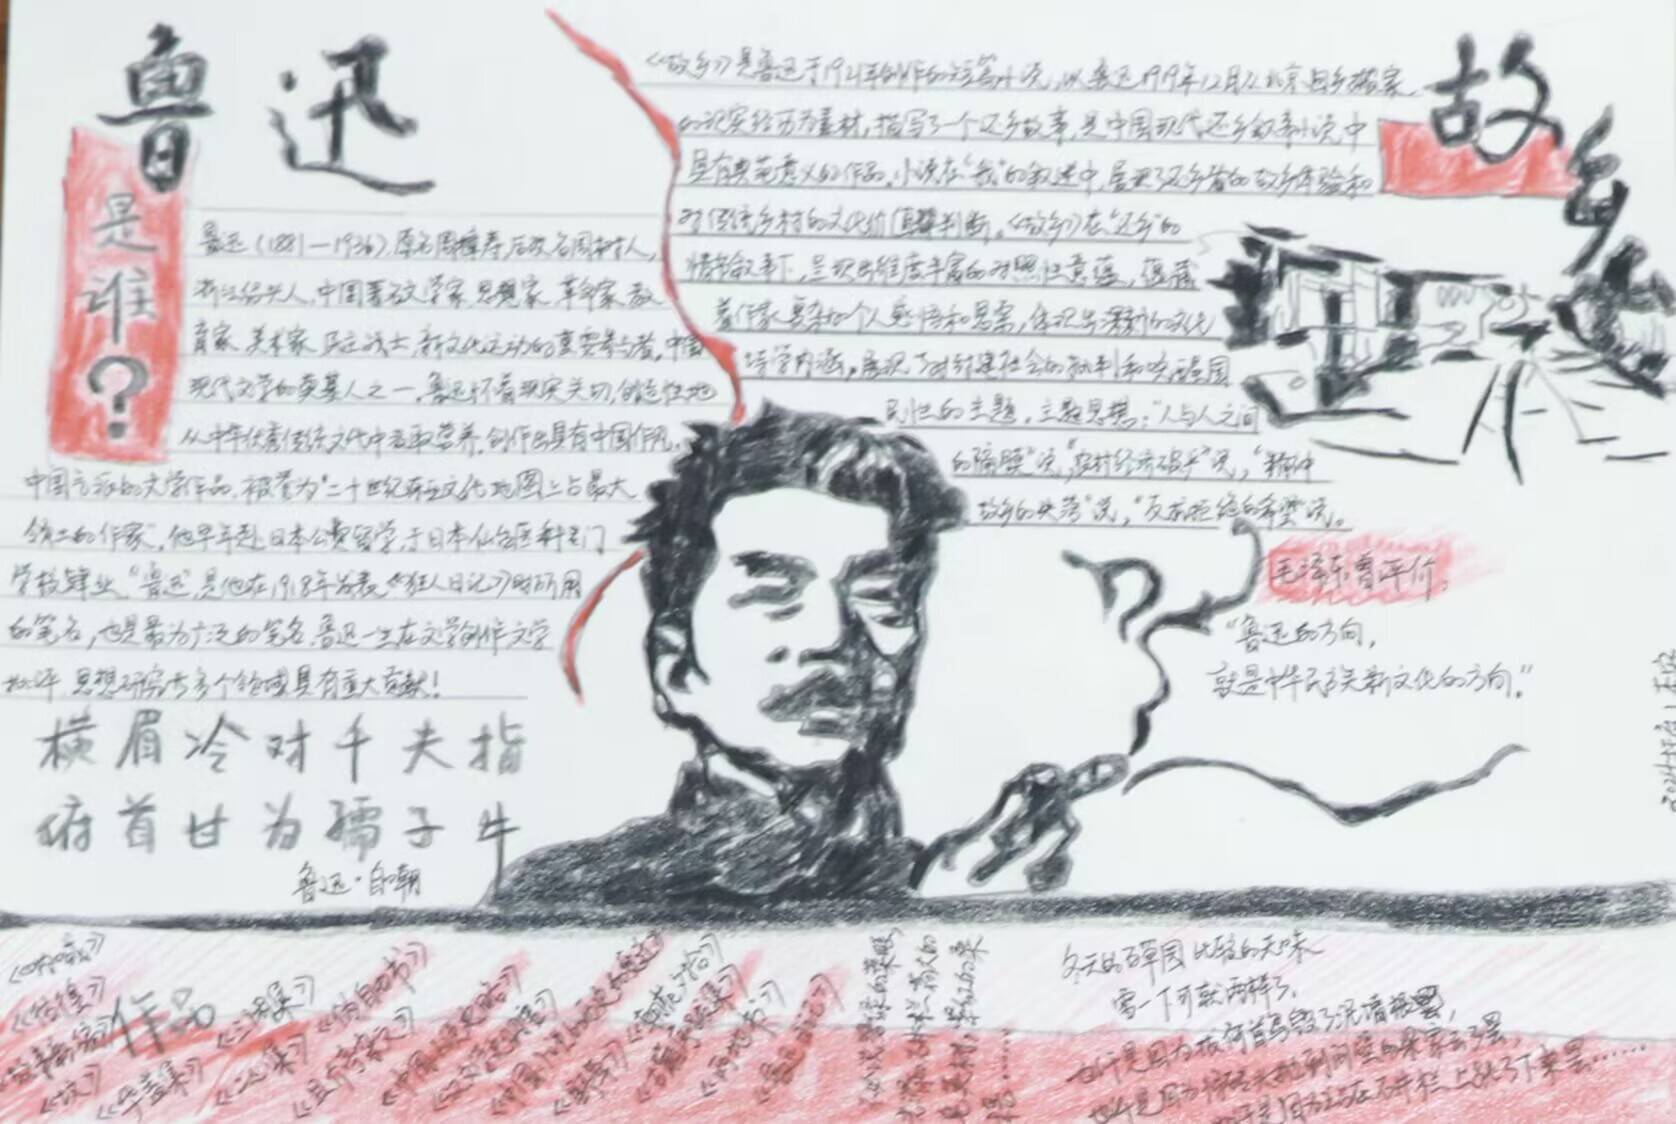 鲁迅
是谁?
鲁迅(1881—1936),原名周樟寿,后改名周树人,
浙江绍兴人,中国著名文学家、思想家、革命家、教
育家、美术家、民主战士,新文化运动的重要参与者,中国
现代文学的奠基人之一。鲁迅怀着现实关切,创造性地
从中华优秀传统文化中汲取营养,创作出具有中国作风、
中国气派的文学作品,被誉为“二十世纪东亚文化地图上占最大
领土的作家”。他早年赴日本公费留学,于日本仙台医科专门
学校肄业。“鲁迅”是他在1918年发表《狂人日记》时所用
的笔名,也是最为广泛的笔名。鲁迅一生在文学创作、文学
批评、思想研究等多个领域具有重大贡献!
横眉冷对千夫指
俯首甘为孺子牛
鲁迅·自嘲
故乡
《故乡》是鲁迅于1921年创作的短篇小说,以鲁迅1919年12月从北京回乡搬家
的现实经历为素材,描写了一个还乡故事,是中国现代还乡叙事小说中
具有典范意义的作品。小说在“我”的叙述中,呈现了还乡者的故乡体验和
对传统乡村的文化价值判断。《故乡》在“还乡”的
情节叙事下,呈现出维度丰富的对照性意蕴,蕴藏
着作家复杂的个人感悟和思索,体现出深刻的文化
哲学内涵。展现了对封建社会的批判和唤醒国
民性的主题。主题思想:“人与人之间
的隔膜”说,“农村经济破产”说,“精神
故乡的失落”说,“反抗绝望的希望”说。
毛泽东曾评价:
“鲁迅的方向,
就是中华民族新文化的方向。”
作品
《呐喊》
《彷徨》
《故事新编》
《坟》
《华盖集》
《三闲集》
《二心集》
《伪自由书》
《且介亭杂文》
《中国小说史略》
《汉文学史纲要》
《中国小说的历史的变迁》
《野草》
《南腔北调集》
《两地书》
不必说碧绿的菜畦,
光滑的石井栏,高大的
皂荚树,紫红的桑
椹……
冬天的百草园比较的无味
雪一下可就两样了。
也许是因为拔何首乌毁了泥墙罢,
也许是因为将砖头抛到间壁的梁家去了罢,
也许是因为站在石井栏上跳了下来罢……